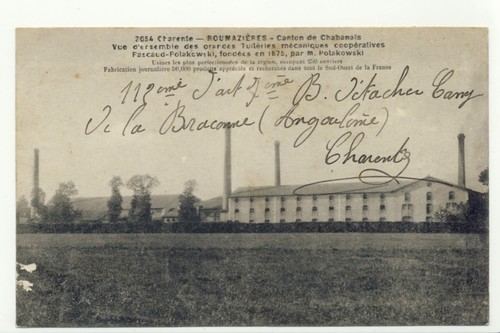 2054 Charente — ROUMAZIÈRES - Canton de Chabanais
Vue d'ensemble des grandes Tuileries mécaniques coopératives
Fascaud-Polakowski, fondées en 1875, par M. Polakowski
Usines les plus perfectionnées de la région, occupant 250 ouvriers
Fabrication journalière 50,000 produits appréciés et recherchés dans tout le Sud-Ouest de la France
112ème d'art 7ème B.
de la Braconne (Angoulême)
Charente